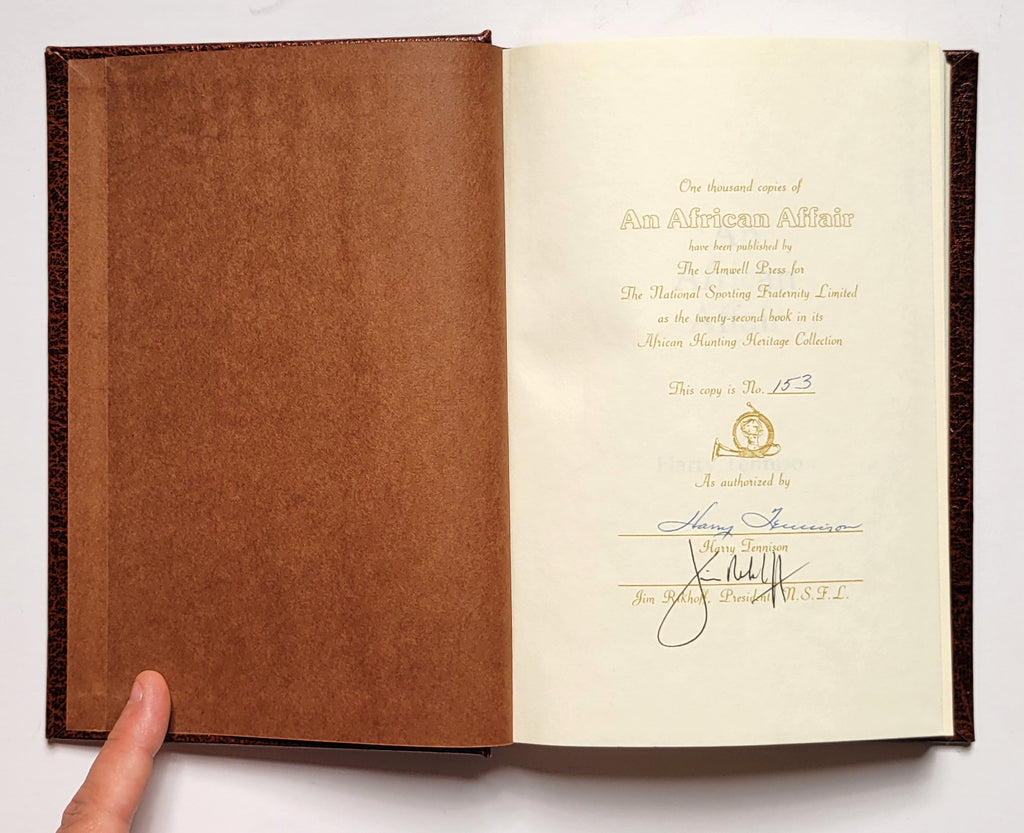 One thousand copies of
An African Affair
have been published by
The Amwell Press for
The National Sporting Fraternity Limited
as the twenty-second book in its
African Hunting Heritage Collection
This copy is No. 153
As authorized by
Harry Tennison
Harry Tennison
Jim Rikhoff
Jim Rikhoff, President, N.S.F.L.